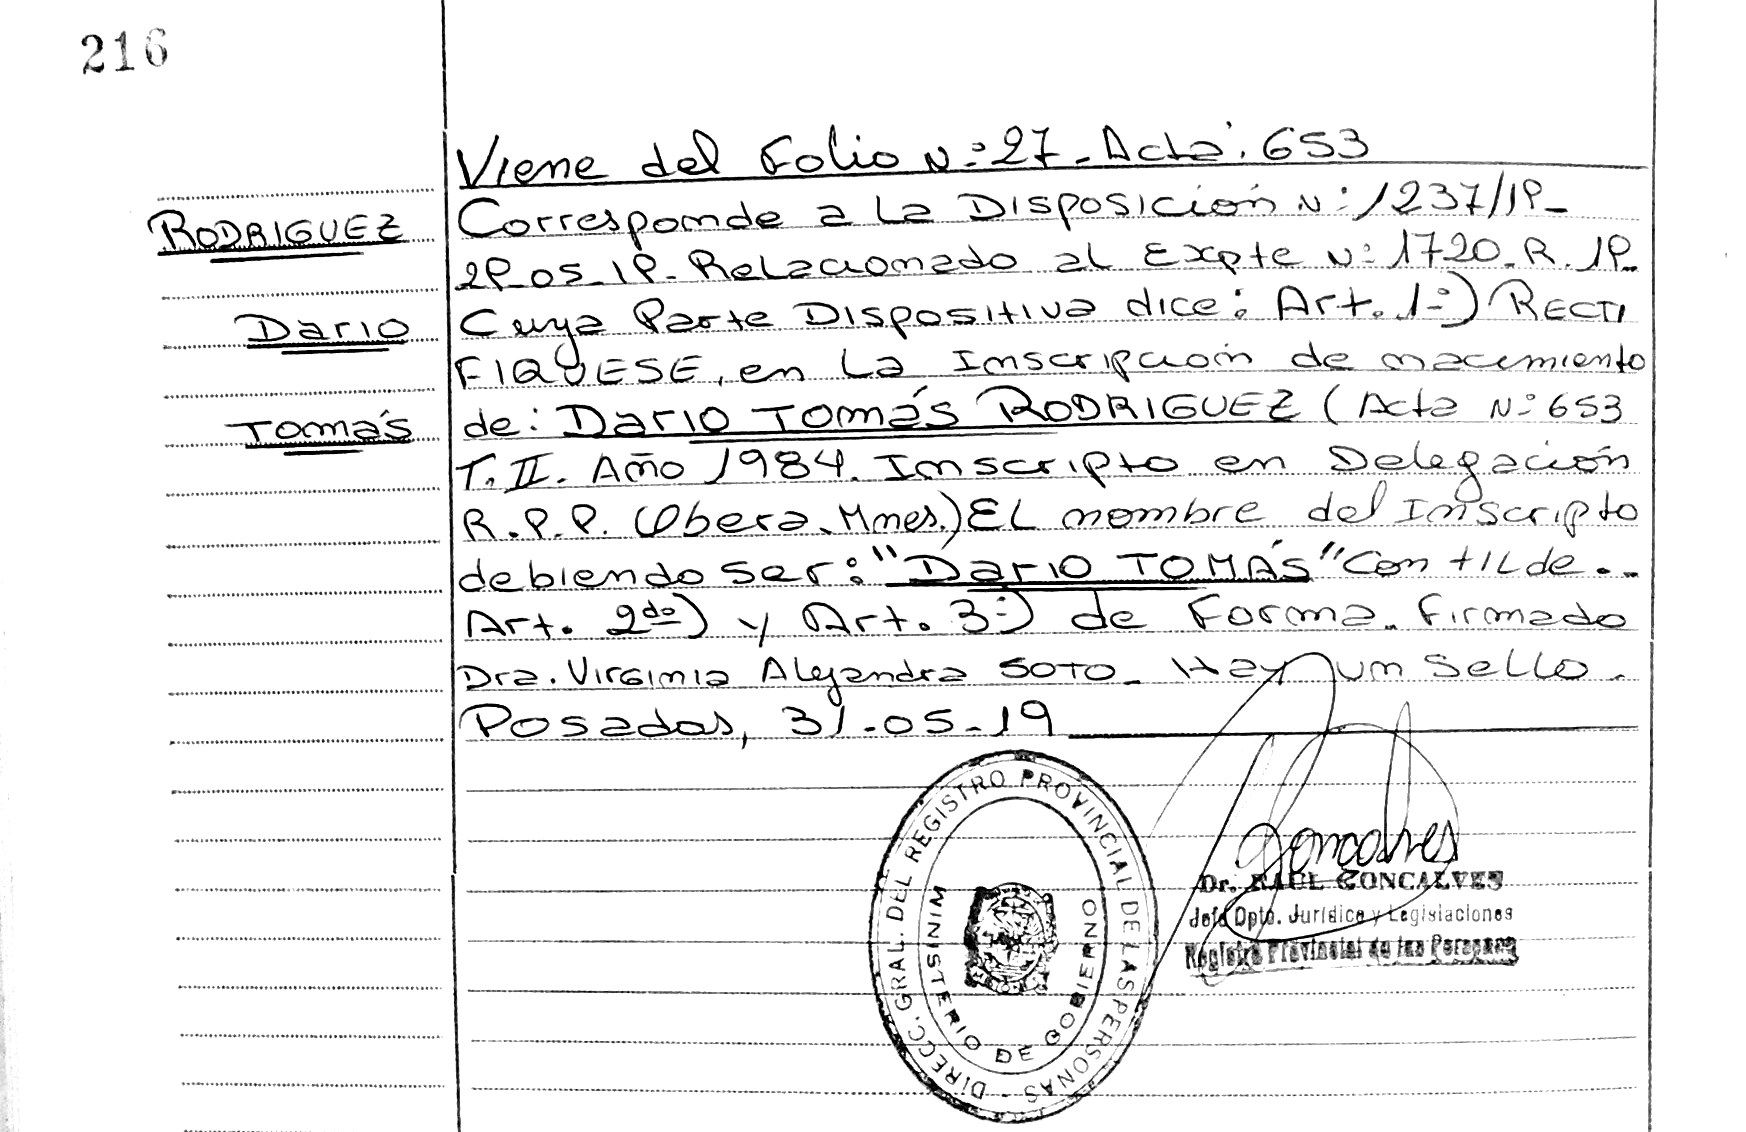 216
Viene del Folio N:º 27 - Acta: 653
RODRIGUEZ
Corresponde a la Disposición Nº: 1237/19-
29-05-19- Relacionado al Expte Nº: 1720-R-19-
Dario
Cuya Parte Dispositiva dice: Art. 1º-) RECTI
FIQUESE, en La Inscripción de nacimiento
Tomás
de: Dario Tomás RODRIGUEZ (Acta Nº 653
T. II. Año 1984. Inscripto en Delegación
R.P.P. (Obera-Mnes.) EL nombre del Inscripto
debiendo ser: "Dario TOMÁS" Con tilde..
Art. 2do) y Art. 3º) de Forma. Firmado
Dra. Virginia Alejandra SOTO- Hay un Sello.
Posadas, 31-05-19
Goncalves
Dr. RAUL GONCALVES
Jefe Dpto. Jurídica y Legislaciones
Registro Provincial de las Personas
DIRECC. GRAL. DEL REGISTRO PROVINCIAL DE LAS PERSONAS -
MINISTERIO DE GOBIERNO